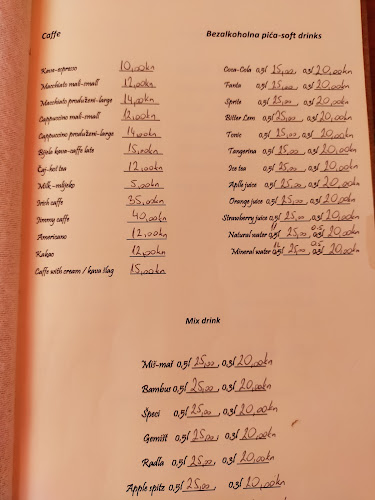 Caffe
Kava-espreso 10,00kn
Macchiato mali-small 12,00kn
Macchiato produženi-large 14,00kn
Cappuccino mali-small 12,00kn
Cappuccino produženi-large 14,00kn
Bijela kava-caffe late 15,00kn
Čaj-hot tea 12,00kn
Milk-mlijeko 5,00kn
Irich caffe 35,00kn
Jimmy caffe 40,00kn
Americano 12,00kn
Kakao 12,00kn
Caffe with cream / kava šlag 15,00kn
Bezalkoholna pića-soft drinks
Coca-Cola 0,5l 25,00, 0,3l 20,00kn
Fanta 0,5l 25,00, 0,3l 20,00kn
Sprite 0,5l 25,00, 0,3l 20,00kn
Bitter Lem 0,5l 25,00, 0,3l 20,00kn
Tonic 0,5l 25,00, 0,3l 20,00kn
Tangerina 0,5l 25,00, 0,3l 20,00kn
Ice tea 0,5l 25,00, 0,3l 20,00kn
Aplle juice 0,5l 25,00, 0,3l 20,00kn
Orange juice 0,5l 25,00, 0,3l 20,00kn
Strawberry juice 0,5l 25,00, 0,3l 20,00kn
Natural water 1l 25,00, 0.5l 20,00kn
Mineral water 1l 25,00, 0.5l 20,00kn
Mix drink
Miš-maš 0,5l 25,00, 0,3l 20,00kn
Bambus 0,5l 25,00, 0,3l 20,00kn
Špeci 0,5l 25,00, 0,3l 20,00kn
Gemišt 0,5l 25,00, 0,3l 20,00kn
Radla 0,5l 25,00, 0,3l 20,00kn
Apple spitz 0,5l 25,00, 0,3l 20,00kn